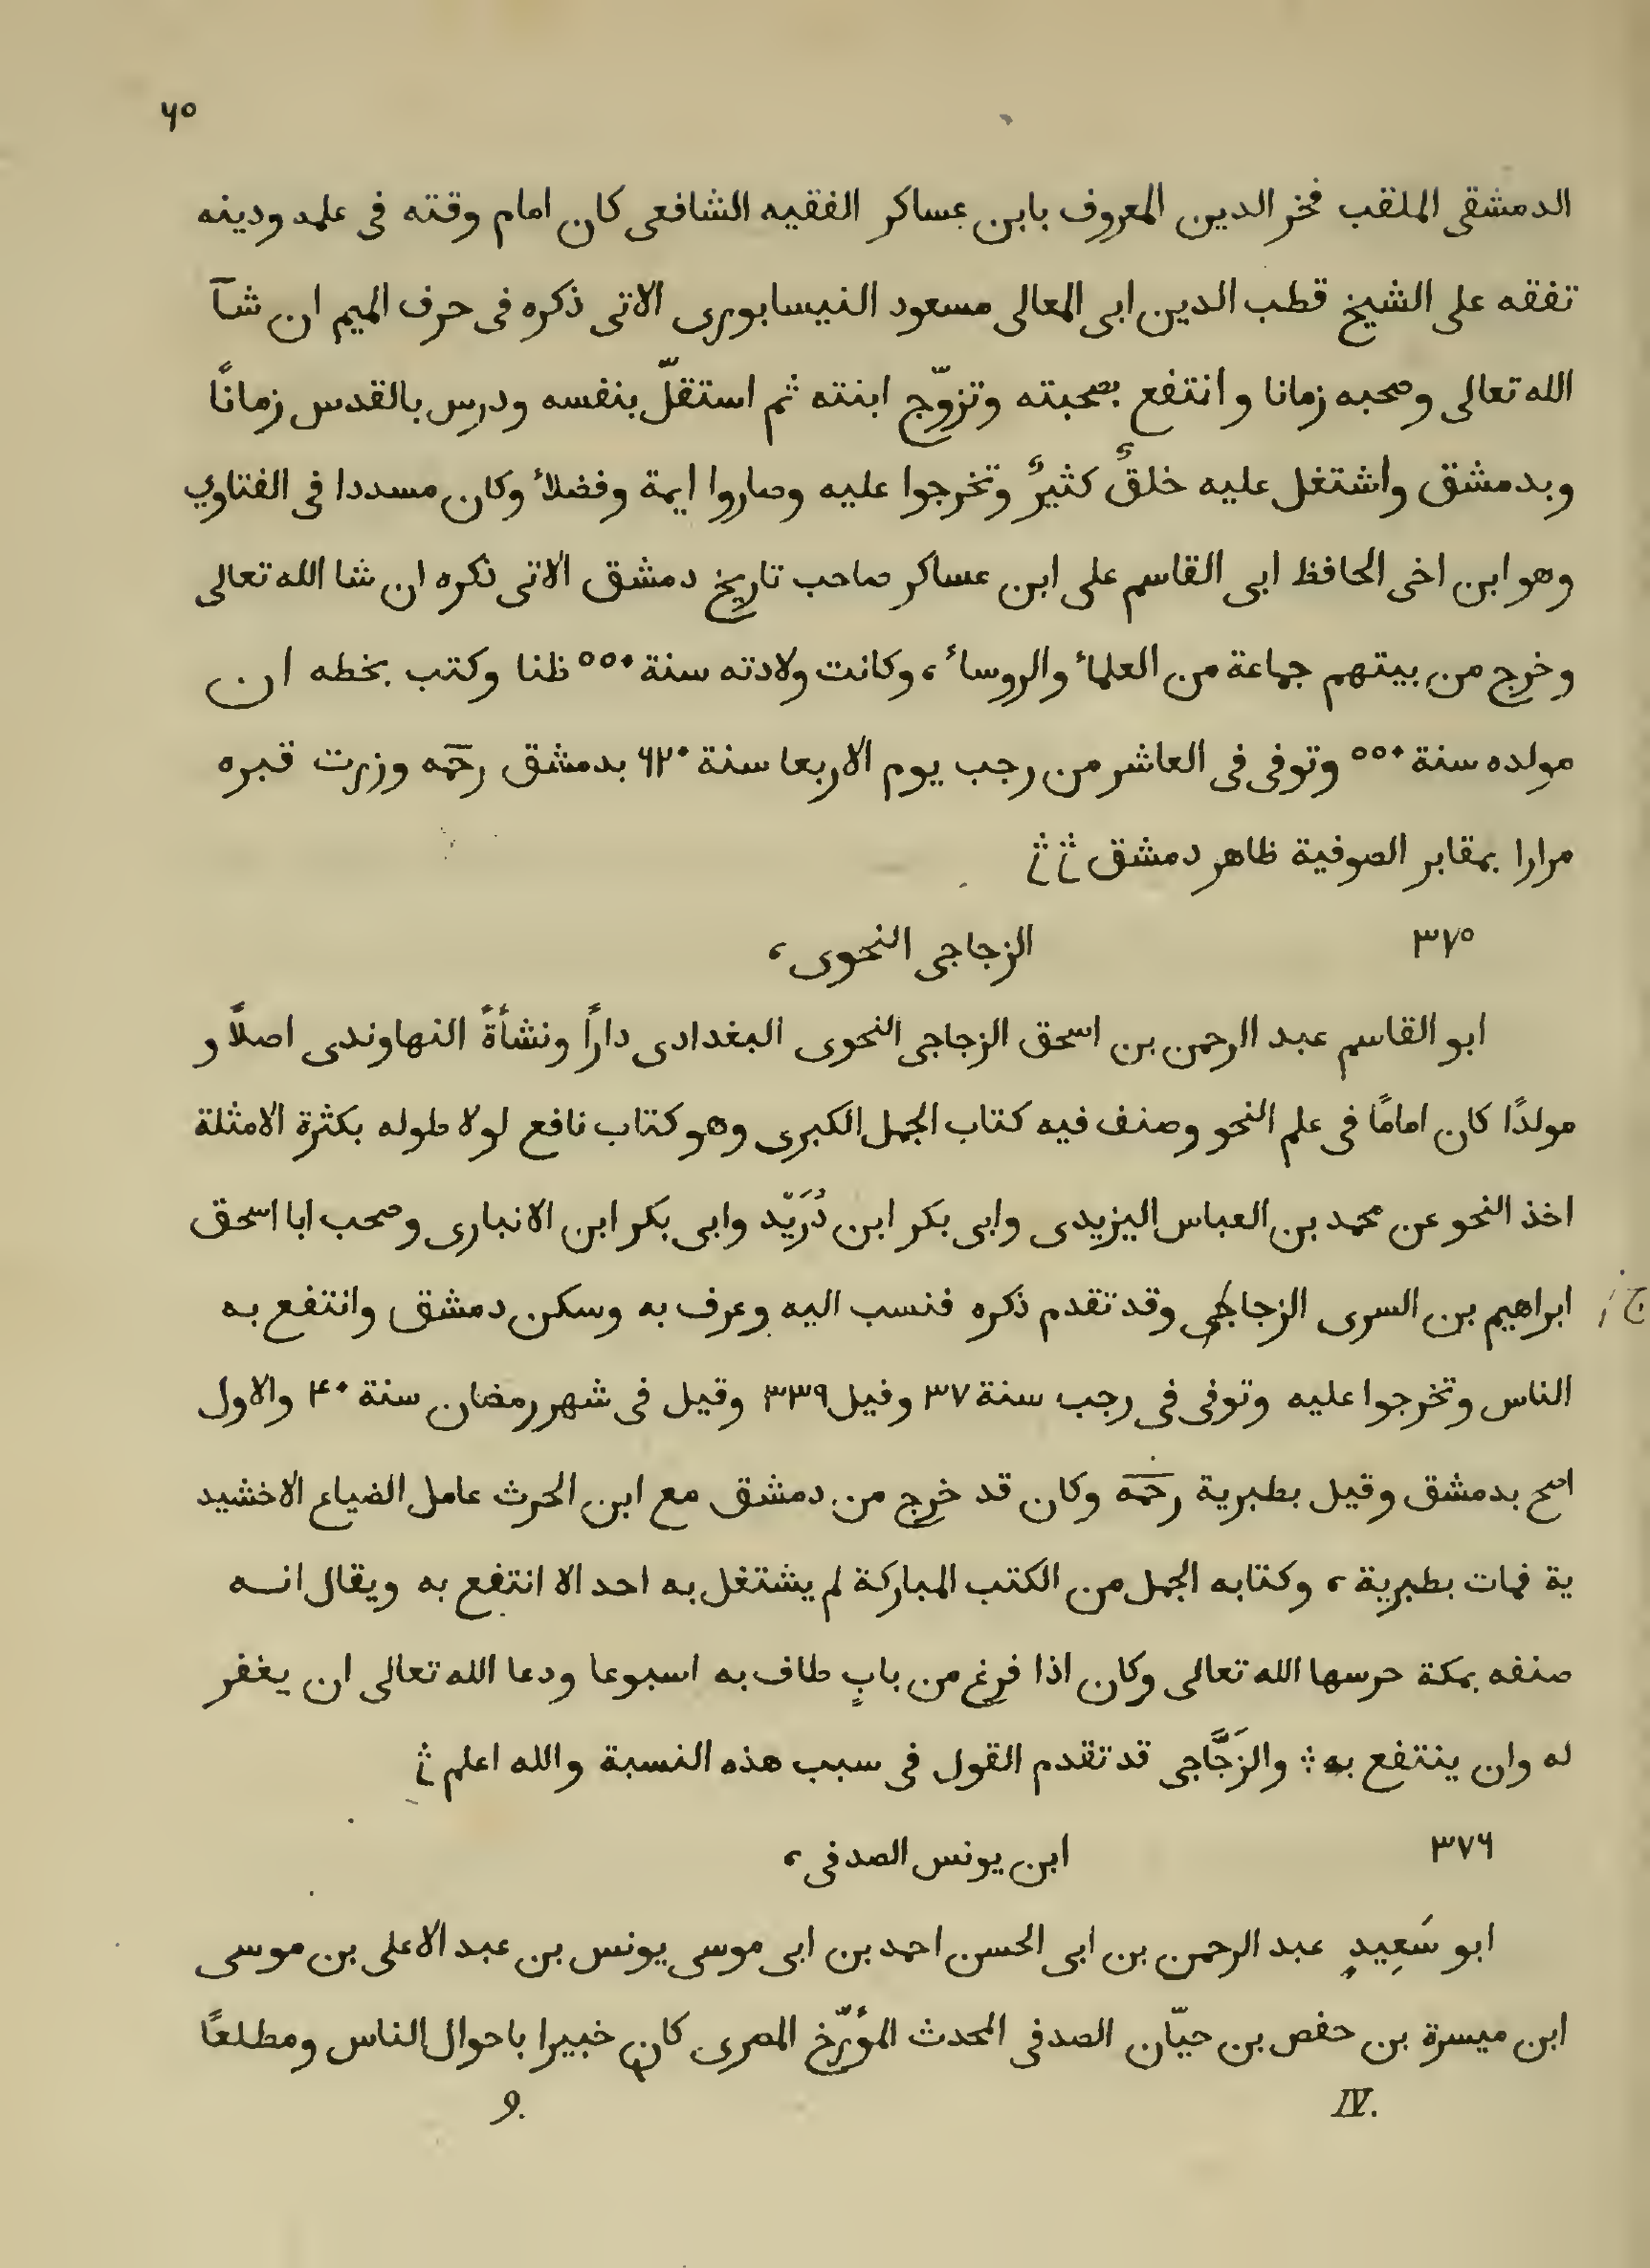 ٦٥
الدمشقى الملقب فخر الدين المعروف بابن عساكر الفقيه الشافعى كان امام وقته فى علمه ودينه
تفقه على الشيخ قطب الدين ابى المعالى مسعود النيسابورى الاتى ذكره فى حرف الميم ان شآ
الله تعالى وصحبه زمانا وانتفع بصحبته وتزوّج ابنته ثم استقلّ بنفسه ودرس بالقدس زمانًا
وبدمشق واشتغل عليه خلقٌ كثيرٌ وتخرجوا عليه وصاروا ايمة وفضلأ وكان مسددا فى الفتاوي
وهو ابن اخى الحافظ ابى القاسم على ابن عساكر صاحب تاريخ دمشق الاتى ذكره ان شا الله تعالى
وخرج من بيتهم جماعة من العلمأ والروسأ، وكانت ولادته سنة ٥٥٠ ظنا وكتب بخطه ان
مولده سنة ٥٥٠ وتوفى فى العاشر من رجب يوم الاربعا سنة ٦٢٠ بدمشق رحمه وزرت قبره
مرارا بمقابر الصوفية ظاهر دمشق
٣٧٥ الزجاجى النحوى،
ابو القاسم عبد الرحمن بن اسحق الزجاجى النحوى البغدادى دارًا ونشأةً النهاوندى اصلًا و
مولدًا كان امامًا فى علم النحو وصنف فيه كتاب الجمل الكبرى وهو كتاب نافع لولا طوله بكثرة الامثلة
اخذ النحو عن محمد بن العباس اليزيدى وابى بكر ابن دُرَيّد وابى بكر ابن الانبارى وصحب ابا اسحق
ابراهيم بن السرى الزجاجى وقد تقدم ذكره فنسب اليه وعرف به وسكن دمشق وانتفع به
ج
الناس وتخرجوا عليه وتوفى فى رجب سنة ٣٧ وفيل ٣٣٩ وقيل فى شهر رمضان سنة ٤٠ والاول
اصح بدمشق وقيل بطبرية رحمه وكان قد خرج من دمشق مع ابن الحرث عامل الضياع الاخشيد
ية فمات بطبرية، وكتابه الجمل من الكتب المباركة لم يشتغل به احد الا انتفع به ويقال انه
صنفه بمكة حرسها الله تعالى وكان اذا فرغ من بابٍ طاف به اسبوعا ودعا الله تعالى ان يغفر
له وان ينتفع به ؛ والزَجَّاجى قد تقدم القول فى سبب هذه النسبة والله اعلم
٣٧٦ ابن يونس الصدفى،
ابو سَعِيدٍ عبد الرحمن بن ابى الحسن احمد بن ابى موسى يونس بن عبد الاعلى بن موسى
ابن ميسرة بن حفص بن حيّان الصدفى المحدث المؤرّخ المصرى كان خبيرا باحوال الناس ومطلعًا
IV. 9.